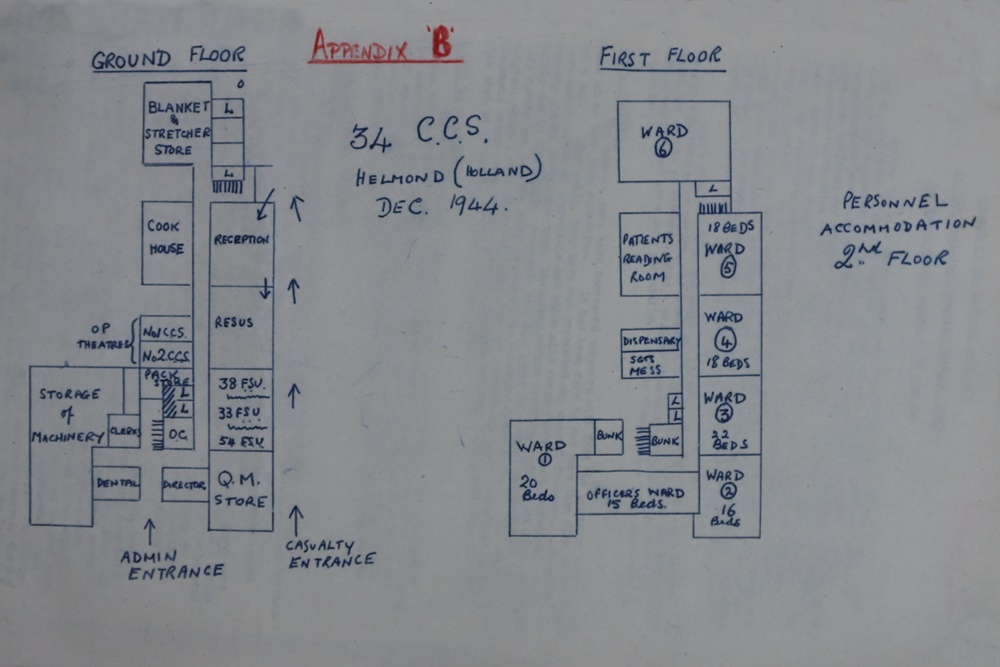 APPENDIX 'B'
GROUND FLOOR
BLANKET
&
STRETCHER
STORE
L
L
COOK
HOUSE
RECEPTION
RESUS
OP
THEATRES
No1 CCS.
No2 CCS.
PACK
STORE
L
L
O.C.
STORAGE
of
MACHINERY
CLERKS
38 FSU.
33 FSU
54 FSU.
DENTAL
DIRECTOR
Q.M.
STORE
ADMIN
ENTRANCE
CASUALTY
ENTRANCE
34 C.C.S.
HELMOND (HOLLAND)
DEC. 1944.
FIRST FLOOR
WARD
6
L
18 BEDS
WARD
5
PATIENTS
READING
ROOM
WARD
4
18 BEDS
DISPENSARY
SGTS
MESS
WARD
3
22
BEDS
L
L
BUNK
BUNK
WARD
1
20
Beds
OFFICER'S WARD
15 Beds.
WARD
2
16
Beds
PERSONNEL
ACCOMMODATION
2nd FLOOR